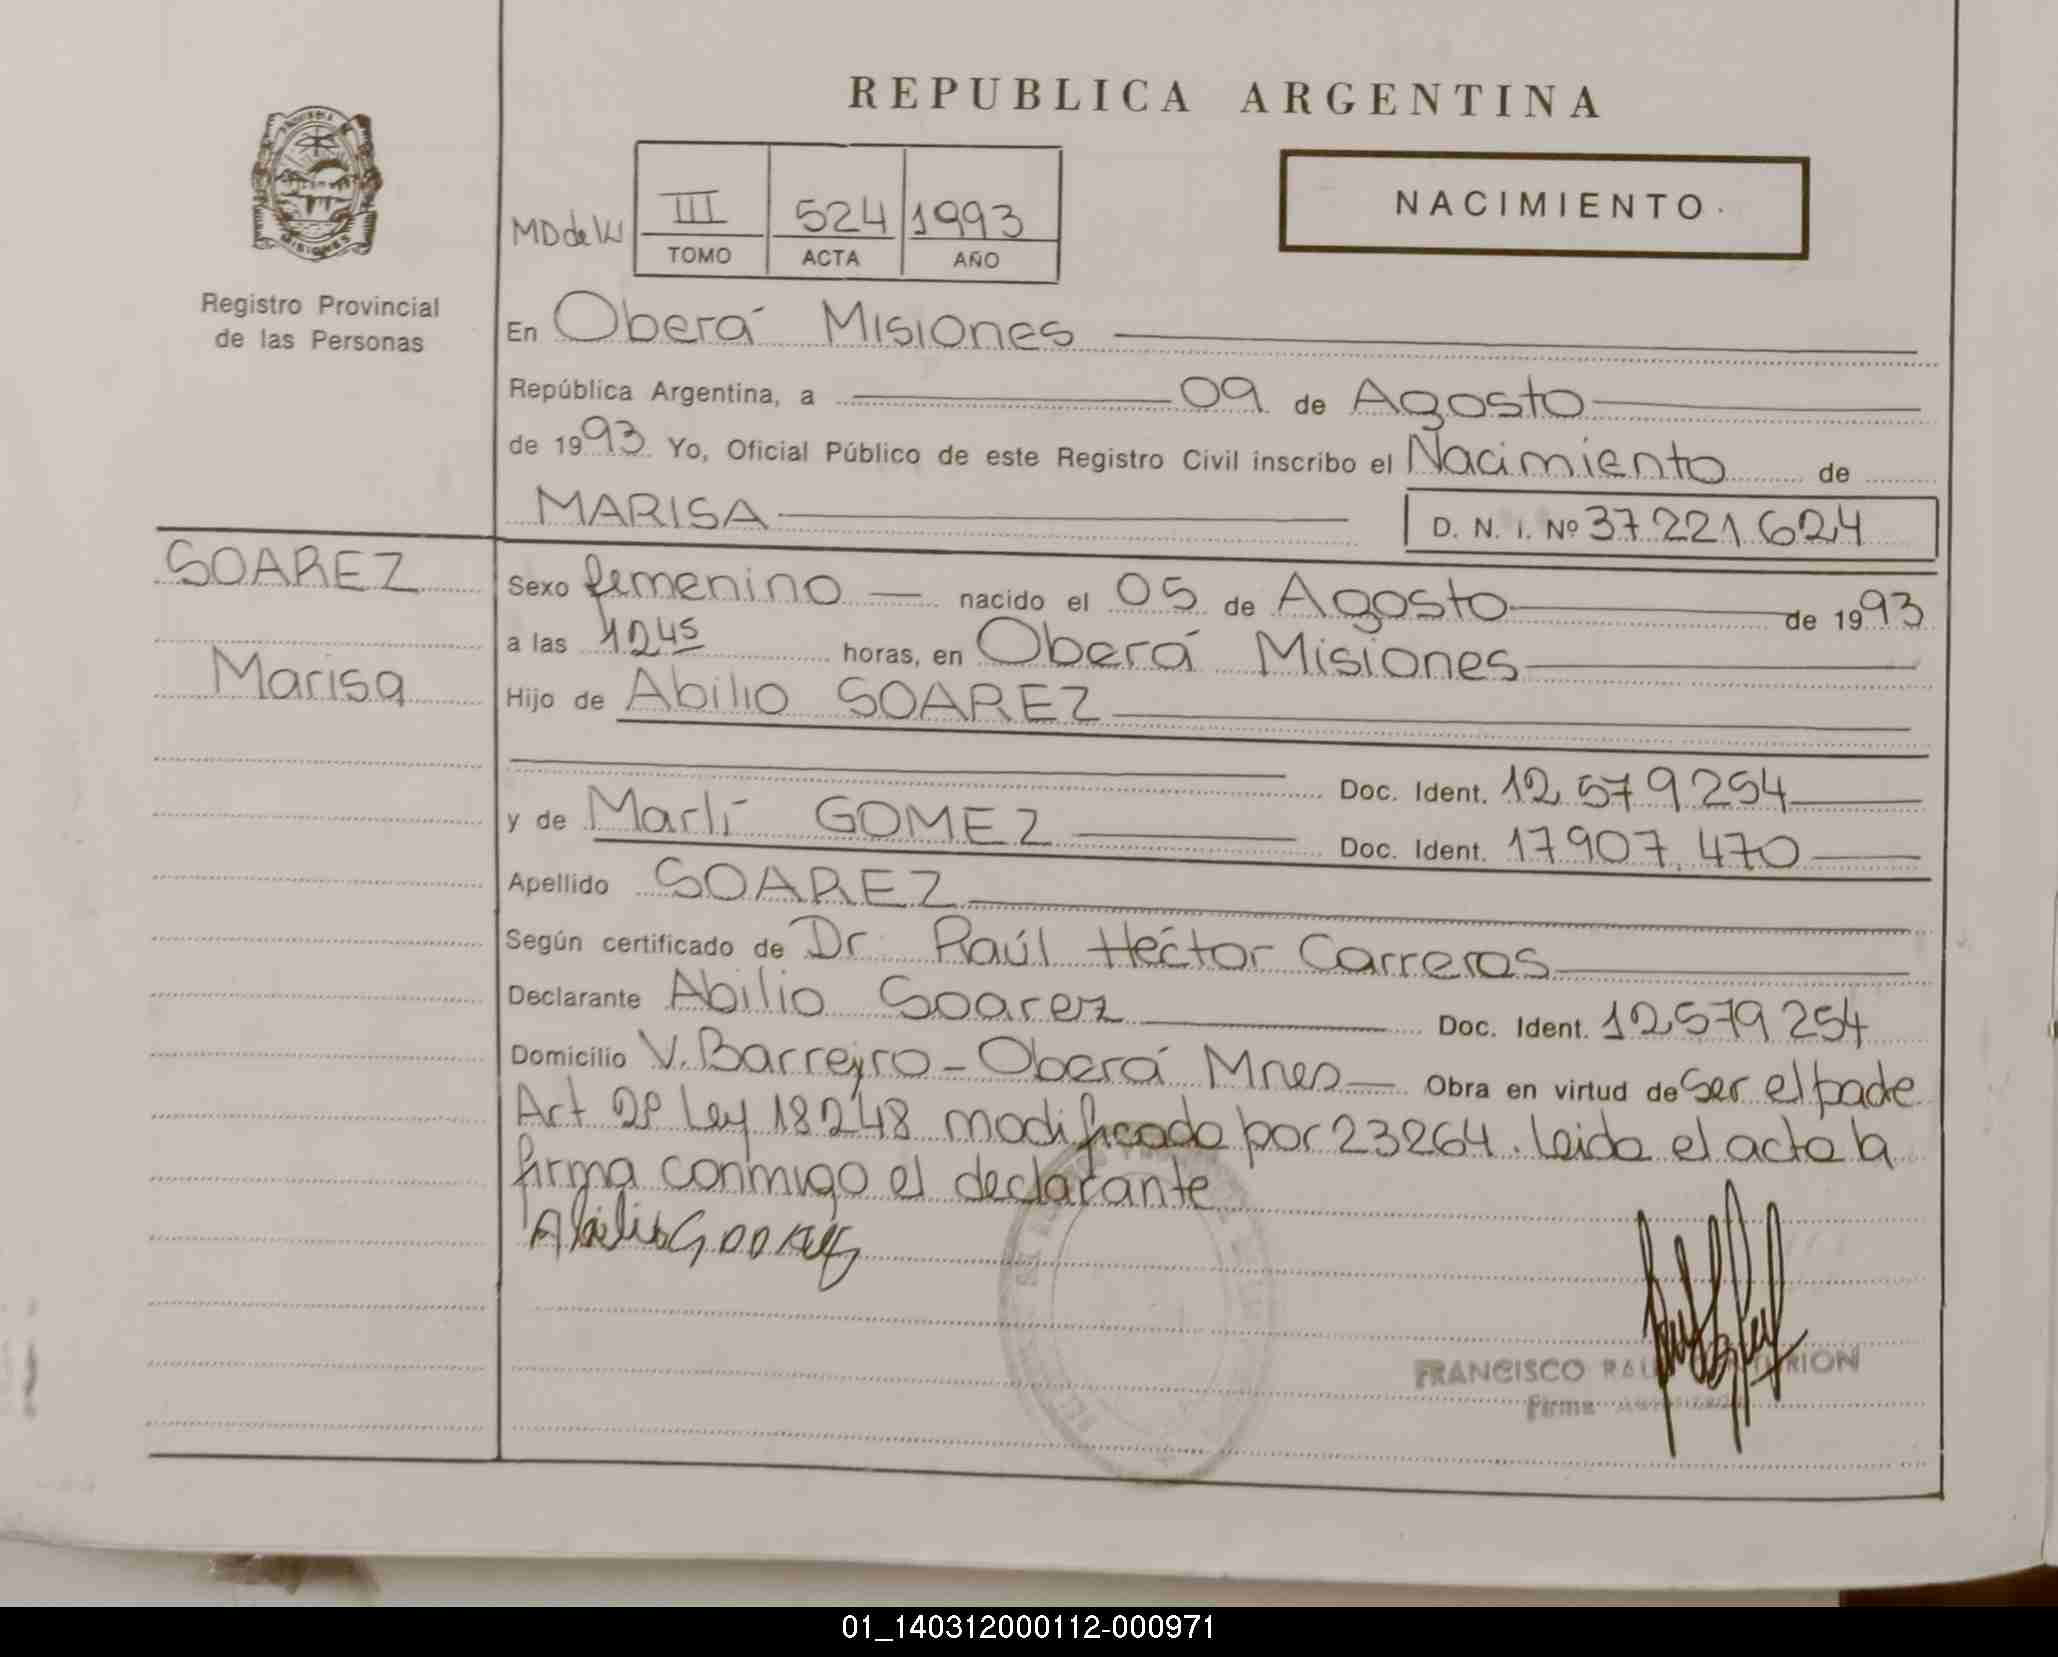 REPUBLICA ARGENTINA
NACIMIENTO
III 524 1993
TOMO ACTA AÑO
Registro Provincial
de las Personas
En Oberá Misiones
República Argentina, a 09 de Agosto
de 1993 Yo, Oficial Público de este Registro Civil inscribo el Nacimiento de
MARISA D. N. I. Nº 37 221 624
SOAREZ
Marisa
Sexo femenino nacido el 05 de Agosto de 1993
a las 12 45 horas, en Oberá Misiones
Hijo de Abilio SOAREZ
Doc. Ident. 12 579 254
y de Marlí GOMEZ Doc. Ident. 17907.470
Apellido SOAREZ
Según certificado de Dr. Raúl Héctor Carreras
Declarante Abilio Soarez Doc. Ident. 12579 254
Domicilio V. Barreyro - Oberá Mnes Obra en virtud de ser el padre
Art 2º Ley 18248 modificado por 23264. Leida el acta la
firma conmigo el declarante
FRANCISCO
Firma
01_140312000112-000971